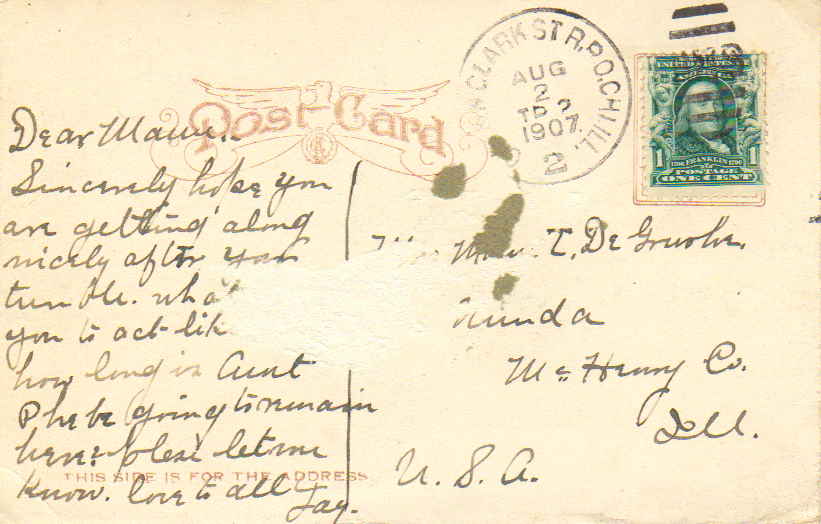 Post Card
CLARK ST R.P.O. CHI ILL.
AUG
2
TR 2
1907
2
1706 FRANKLIN 1790
1 1
POSTAGE
ONE CENT
Dear
Sincerely hope you
are getting along
nicely after your
tumble.
you to act
how long is Aunt
Phebe going to remain
here? please let me
know. love to all
Jay.
T. De
unda
Mc Henry Co.
Ill.
U. S. A.
THIS SIDE IS FOR THE ADDRESS